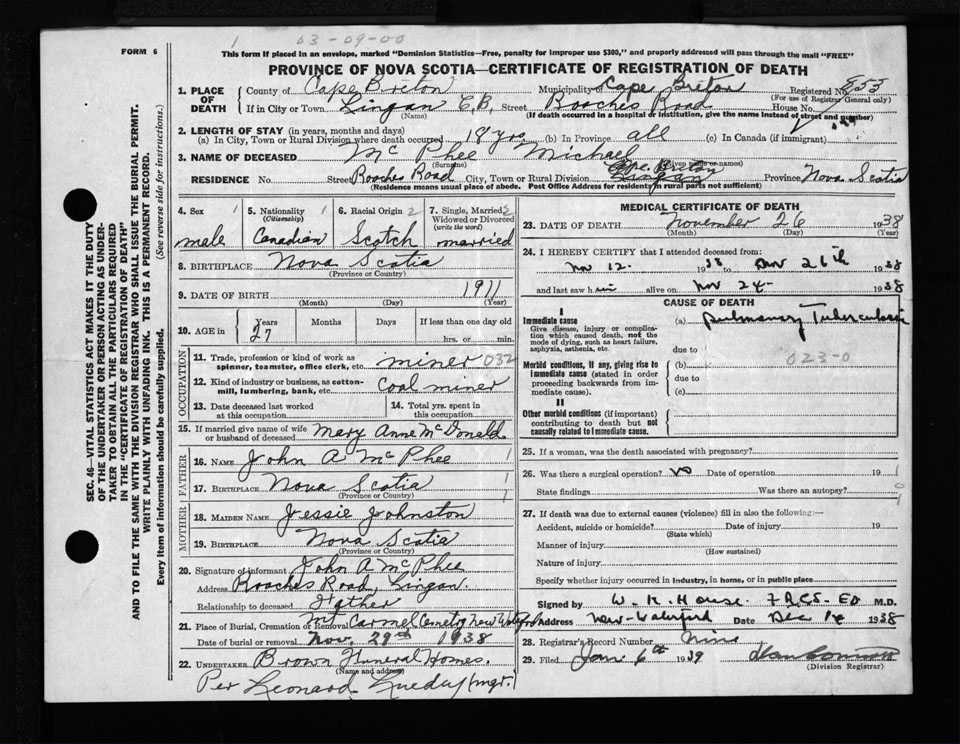 1 03-09-00
FORM 6
This form if placed in an envelope, marked "Dominion Statistics—Free, penalty for improper use $300," and properly addressed will pass through the mail "FREE"
PROVINCE OF NOVA SCOTIA—CERTIFICATE OF REGISTRATION OF DEATH
SEC. 46—VITAL STATISTICS ACT MAKES IT THE DUTY
OF THE UNDERTAKER OR PERSON ACTING AS UNDER-
TAKER TO OBTAIN ALL THE PARTICULARS REQUIRED
IN THE "CERTIFICATE OF REGISTRATION OF DEATH"
AND TO FILE THE SAME WITH THE DIVISION REGISTRAR WHO SHALL ISSUE THE BURIAL PERMIT.
WRITE PLAINLY WITH UNFADING INK. THIS IS A PERMANENT RECORD.
Every item of information should be carefully supplied. (See reverse side for instructions.)
1. PLACE OF DEATH County of Cape Breton Municipality of Cape Breton Registered No. 853
(For use of Registrar General only)
If in City or Town Lingan C.B. Street Roaches Road House No.
(Name) (If death occurred in a hospital or institution, give the name instead of street and number)
2. LENGTH OF STAY (in years, months and days)
(a) In City, Town or Rural Division where death occurred 18 yrs (b) In Province all (c) In Canada (if immigrant)
3. NAME OF DECEASED Mc Phee Michael
(Surname) (Given name or names)
RESIDENCE No. Street Roaches Road City, Town or Rural Division Cape Breton Lingan Province Nova Scotia
(Residence means usual place of abode. Post Office Address for residents in rural parts not sufficient)
4. Sex 1 male
5. Nationality 1 (Citizenship) Canadian
6. Racial Origin 2 Scotch
7. Single, Married 2 Widowed or Divorced (write the word) married
8. BIRTHPLACE Nova Scotia
(Province or Country)
9. DATE OF BIRTH 1911
(Month) (Day) (Year)
10. AGE in Years 27 Months Days If less than one day old
hrs. or min.
OCCUPATION
11. Trade, profession or kind of work as spinner, teamster, office clerk, etc. miner 032
12. Kind of industry or business, as cotton-mill, lumbering, bank, etc. Coal miner
13. Date deceased last worked at this occupation 14. Total yrs. spent in this occupation
15. If married give name of wife or husband of deceased Mary Anne McDonald
FATHER
16. NAME John A McPhee 1
17. BIRTHPLACE Nova Scotia 1
(Province or Country)
MOTHER
18. MAIDEN NAME Jessie Johnston
19. BIRTHPLACE Nova Scotia
(Province or Country)
20. Signature of informant John A McPhee
Address Roaches Road, Lingan.
Relationship to deceased Father
21. Place of Burial, Cremation or Removal Mt Carmel Cemetry New Waterford
Date of burial or removal Nov. 29th 1938
22. UNDERTAKER Brown Funeral Homes.
(Name and address)
Per Leonard mgr.
MEDICAL CERTIFICATE OF DEATH
23. DATE OF DEATH November 26 1938
(Month) (Day) (Year)
24. I HEREBY CERTIFY that I attended deceased from:
Nov 12. 1938 to Nov 26th 1938
and last saw him alive on Nov 24- 1938
CAUSE OF DEATH
I
Immediate cause (a) pulmonary Tuberculosis
Give disease, injury or complication which caused death, not the mode of dying, such as heart failure, asphyxia, asthenia, etc. due to
Morbid conditions, if any, giving rise to immediate cause (stated in order proceeding backwards from immediate cause). (b) 023-0
due to
(c)
II
Other morbid conditions (if important) contributing to death but not causally related to immediate cause.
25. If a woman, was the death associated with pregnancy?
26. Was there a surgical operation? no Date of operation 19
State findings Was there an autopsy?
27. If death was due to external causes (violence) fill in also the following:—
Accident, suicide or homicide? Date of injury 19
(State which)
Manner of injury
(How sustained)
Nature of injury
Specify whether injury occurred in industry, in home, or in public place
Signed by W. K. House. F.R.C.S. ED M.D.
Address New-Waterford Date Dec 14 1938
28. Registrar's Record Number Nine
29. Filed Jan. 6th 1939
(Division Registrar)